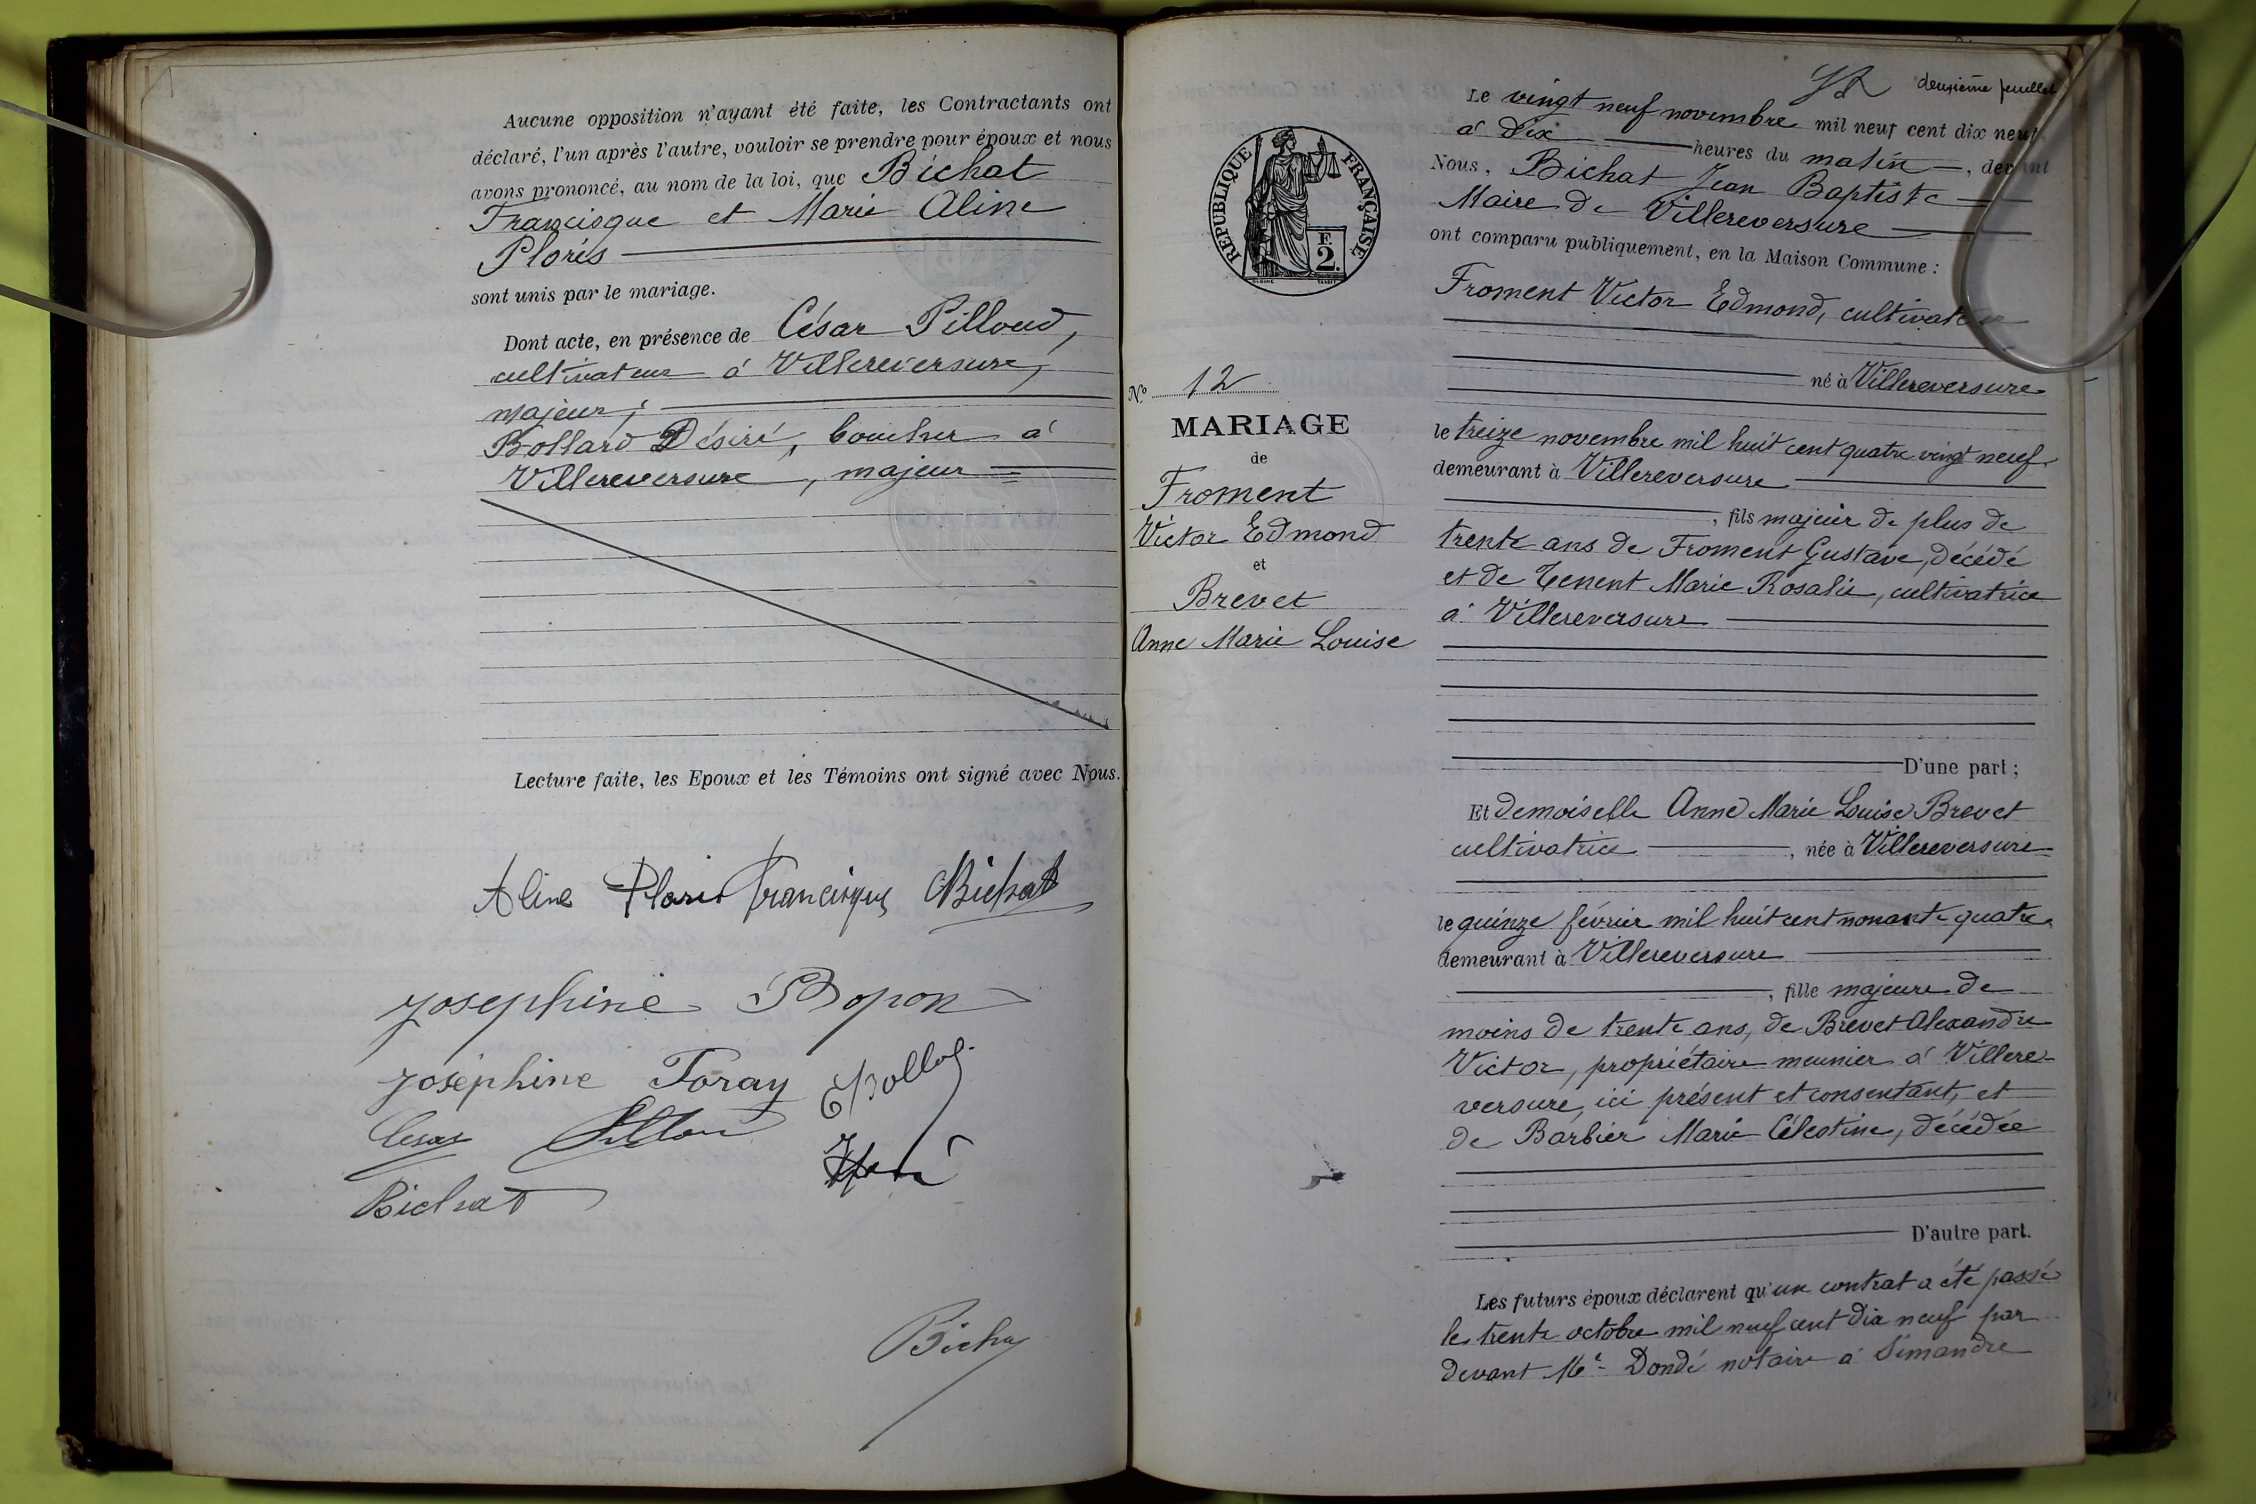 Aucune opposition n'ayant été faite, les Contractants ont
déclaré, l'un après l'autre, vouloir se prendre pour époux et nous
avons prononcé, au nom de la loi, que Bichat
Francisque et Marie Aline
Floris
sont unis par le mariage.
Dont acte, en présence de César Pilloud,
cultivateur à Villereversure,
majeur;
Bollard Désiré, boucher à
Villereversure, majeur
Lecture faite, les Epoux et les Témoins ont signé avec Nous.
Aline Floris Francisque Bichat
Josephine Bopon
Joséphine Foray
César Pilloud
Bichat
deuxième feuillet
Le vingt neuf novembre mil neuf cent dix neuf
à dix heures du matin, devant
Nous, Bichat Jean Baptiste
Maire de Villereversure
ont comparu publiquement, en la Maison Commune :
REPUBLIQUE FRANÇAISE
F
2.
Froment Victor Edmond, cultivateur
né à Villereversure
No 12
MARIAGE
de
Froment
Victor Edmond
et
Brevet
Anne Marie Louise
le treize novembre mil huit cent quatre vingt neuf
demeurant à Villereversure
, fils majeur de plus de
trente ans de Froment Gustave, décédé
et de Tenent Marie Rosalie, cultivatrice
à Villereversure
D'une part ;
Et demoiselle Anne Marie Louise Brevet
cultivatrice, née à Villereversure
le quinze février mil huit cent nonante quatre
demeurant à Villereversure
, fille majeure de
moins de trente ans, de Brevet Alexandre
Victor, propriétaire meunier à Villere-
versure, ici présent et consentant, et
de Barbier Marie Célestine, décédée
D'autre part.
Les futurs époux déclarent qu'un contrat a été passé
le trente octobre mil neuf cent dix neuf par
devant Me Dondé notaire à Simandre